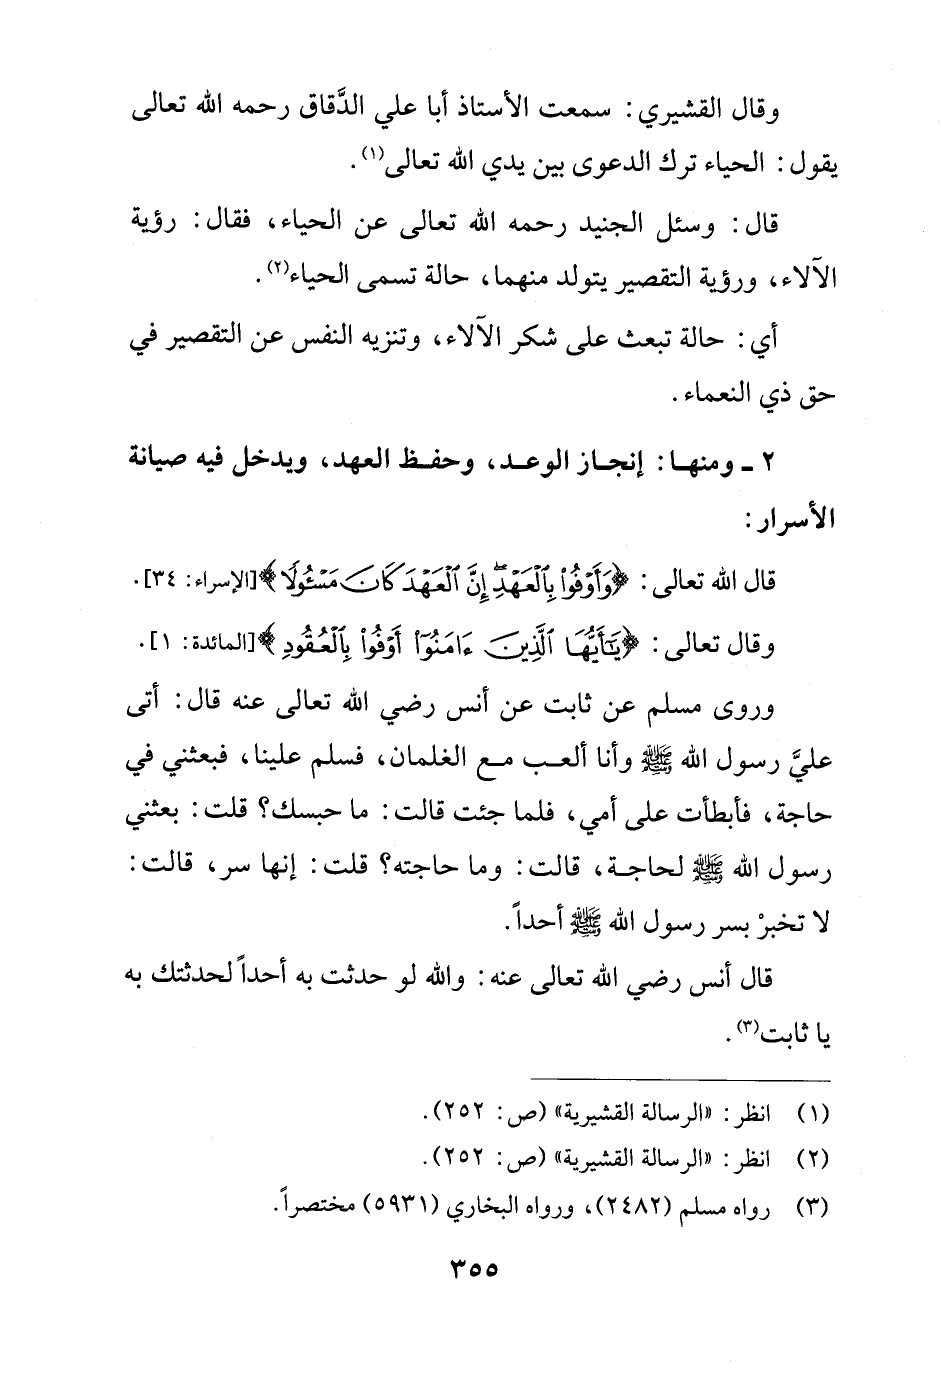 وقال القشيري: سمعت الأستاذ أبا علي الدَّقاق رحمه الله تعالى
يقول: الحياء ترك الدعوى بين يدي الله تعالى(١).
قال: وسئل الجنيد رحمه الله تعالى عن الحياء، فقال: رؤية
الآلاء، ورؤية التقصير يتولد منهما، حالة تسمى الحياء(٢).
أي: حالة تبعث على شكر الآلاء، وتنزيه النفس عن التقصير في
حق ذي النعماء.
٢ ـ ومنها: إنجاز الوعد، وحفظ العهد، ويدخل فيه صيانة
الأسرار:
قال الله تعالى: ﴿وَأَوْفُوا۟ بِٱلْعَهْدِ ۖ إِنَّ ٱلْعَهْدَ كَانَ مَسْـُٔولًا﴾ [الإسراء: ٣٤].
وقال تعالى: ﴿يَـٰٓأَيُّهَا ٱلَّذِينَ ءَامَنُوٓا۟ أَوْفُوا۟ بِٱلْعُقُودِ﴾ [المائدة: ١].
وروى مسلم عن ثابت عن أنس رضي الله تعالى عنه قال: أتى
عليَّ رسول الله ﷺ وأنا ألعب مع الغلمان، فسلم علينا، فبعثني في
حاجة، فأبطأت على أمي، فلما جئت قالت: ما حبسك؟ قلت: بعثني
رسول الله ﷺ لحاجة، قالت: وما حاجته؟ قلت: إنها سر، قالت:
لا تخبرْ بسر رسول الله ﷺ أحداً.
قال أنس رضي الله تعالى عنه: والله لو حدثت به أحداً لحدثتك به
يا ثابت(٣).
(١) انظر: «الرسالة القشيرية» (ص: ٢٥٢).
(٢) انظر: «الرسالة القشيرية» (ص: ٢٥٢).
(٣) رواه مسلم (٢٤٨٢)، ورواه البخاري (٥٩٣١) مختصراً.
٣٥٥